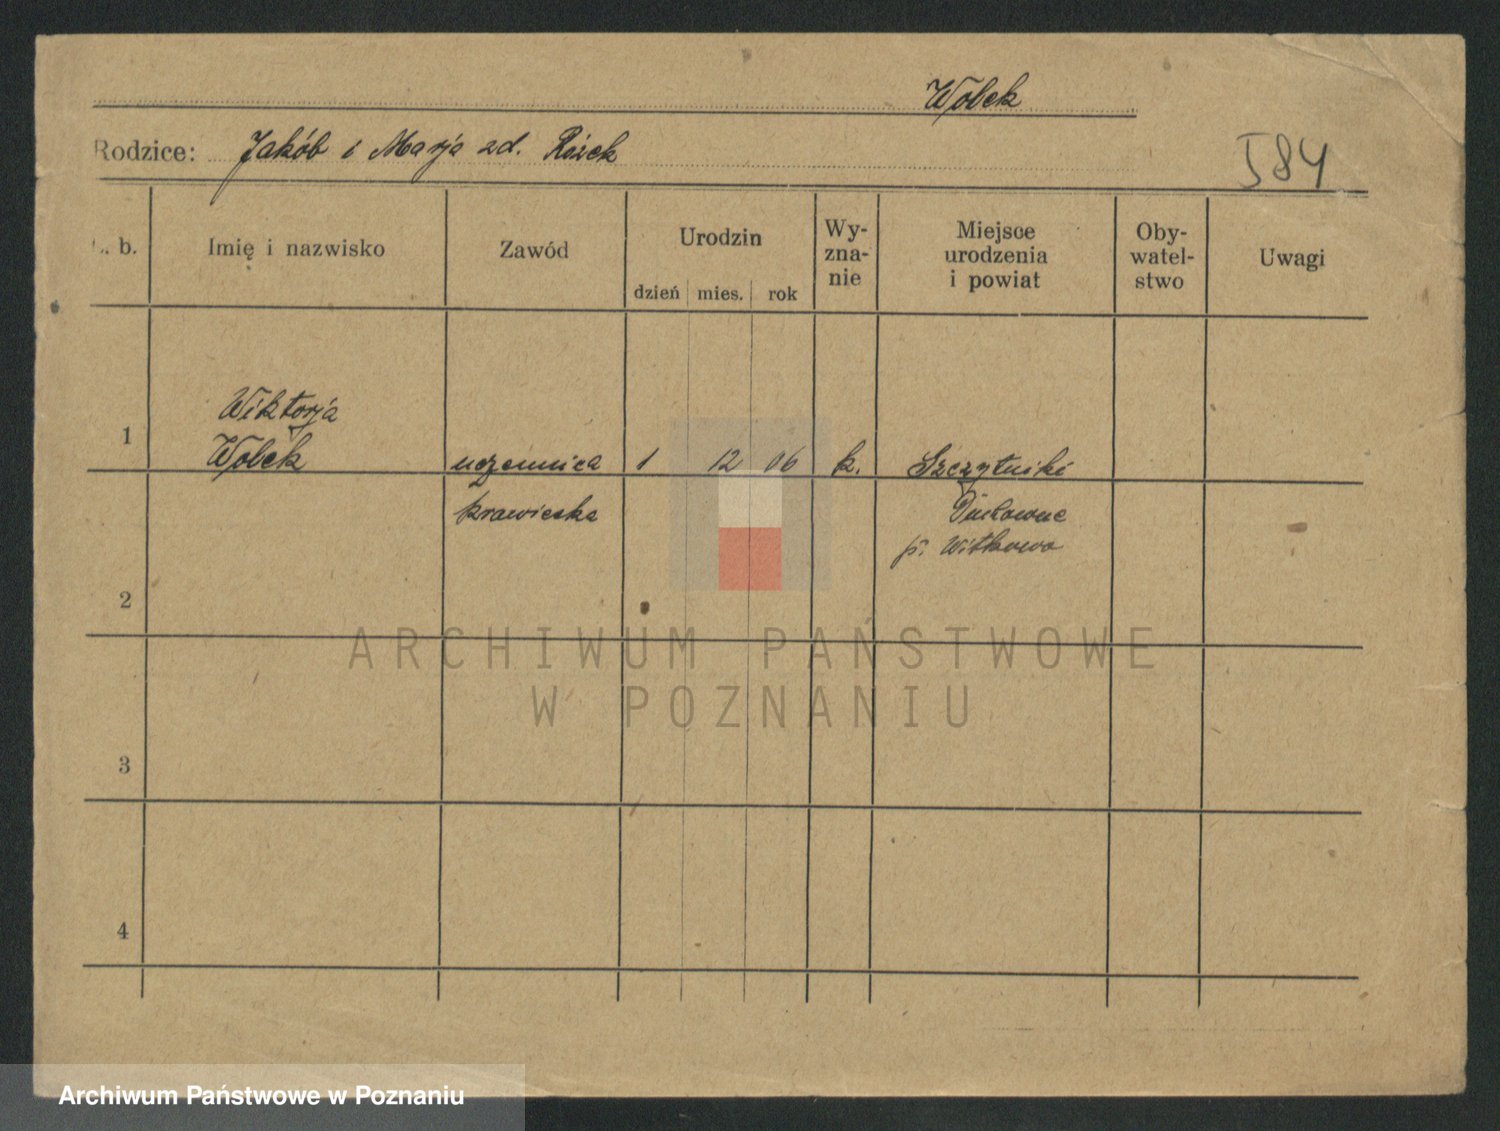 Wolek
Rodzice: Jakób i Marja zd. Rożek
I 84
L. b. Imię i nazwisko Zawód Urodzin dzień mies. rok Wy-zna-nie Miejsce urodzenia i powiat Oby-watel-stwo Uwagi
Wiktorja
1 Wolek uczennica 1 12 06 k. Szczytniki
krawiecka Duchowne
p. Witkowo
2
ARCHIWUM PAŃSTWOWE
W POZNANIU
3
4
Archiwum Państwowe w Poznaniu